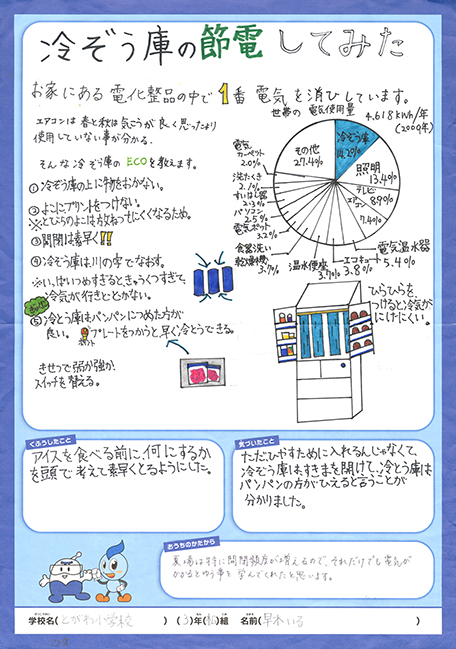 冷ぞう庫の節電してみた
お家にある電化整品の中で1番電気を消ひしています。
エアコンは春と秋は気こうが良く思ったより
使用していない事が分かる。
そんな冷ぞう庫のECOを教えます。
①冷ぞう庫の上に物をおかない。
②よこにプリントをつけない。
※とびらのよこは放ねつしにくくなるため。
③開閉は素早く!!
④冷ぞう庫は、川の字でなおす。
※いっぱいつめすぎるときゅうくつすぎて、
冷気が行きとどかない。
⑤冷とう庫はパンパンにつめた方が
良い。
プレートをつかうと、早く冷とうできる。
きせつで弱か強か
スイッチを替える。
世帯の電気使用量
4.618kWh/年
(2009年)
冷ぞう庫
14.2%
照明
13.4%
テレビ
8.9%
エアコン
7.4%
電気温水器
5.4%
エコキュート
3.8%
温水便座
3.7%
食器洗い
乾燥機
3.7%
電気ポット
3.2%
パソコン
2.5%
すいはん器
2.3%
洗たくき
2.1%
電気
カーペット
2.0%
その他
27.4%
ひらひらを
つけると冷気が
にげにくい。
くふうしたこと
アイスを食べる前に、何にするか
を頭で考えて素早くとるようにした。
気づいたこと
ただ、ひやすために入れるんじゃなくて、
冷ぞう庫は、すきまを開けて、冷とう庫は
パンパンの方がひえると言うことが
分かりました。
おうちのかたから
夏場は特に開閉頻度が増えるので、それだけでも電気が
かかるとゆう事を学んでくれたと思います。
学校名(とがわ小学校) (3)年(松)組 名前(早木いる)